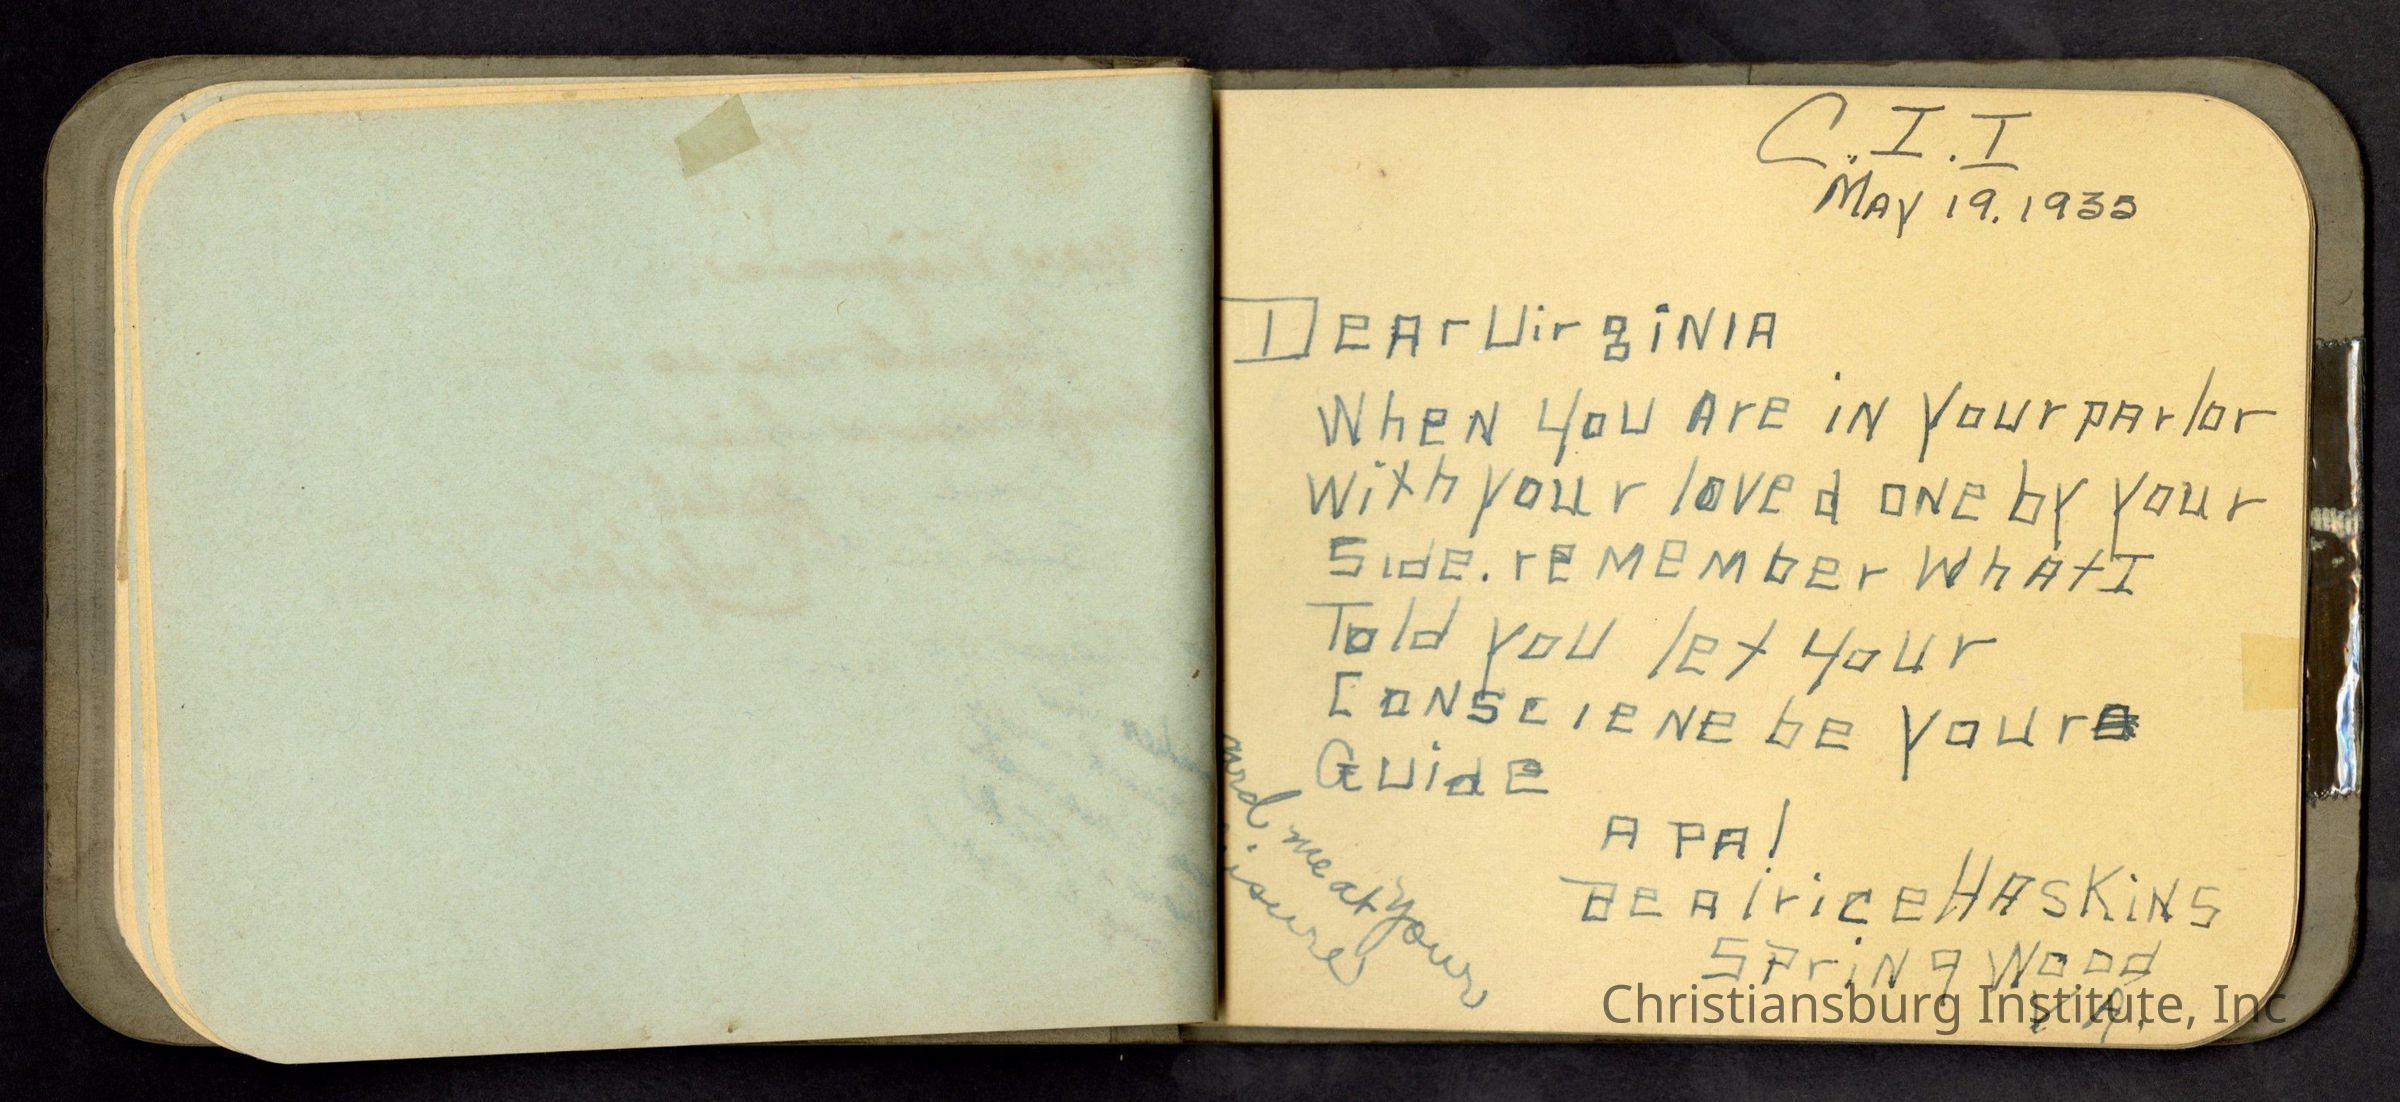 C.I.I
May 19.1935
Dear Virginia
When you are in your parlor
with your loved one by your
side. remember what I
Told you let your
Consciene be your
Guide
a pal
Beatrice Haskins
Spring Wood
VA.
me at your
Christiansburg Institute, Inc